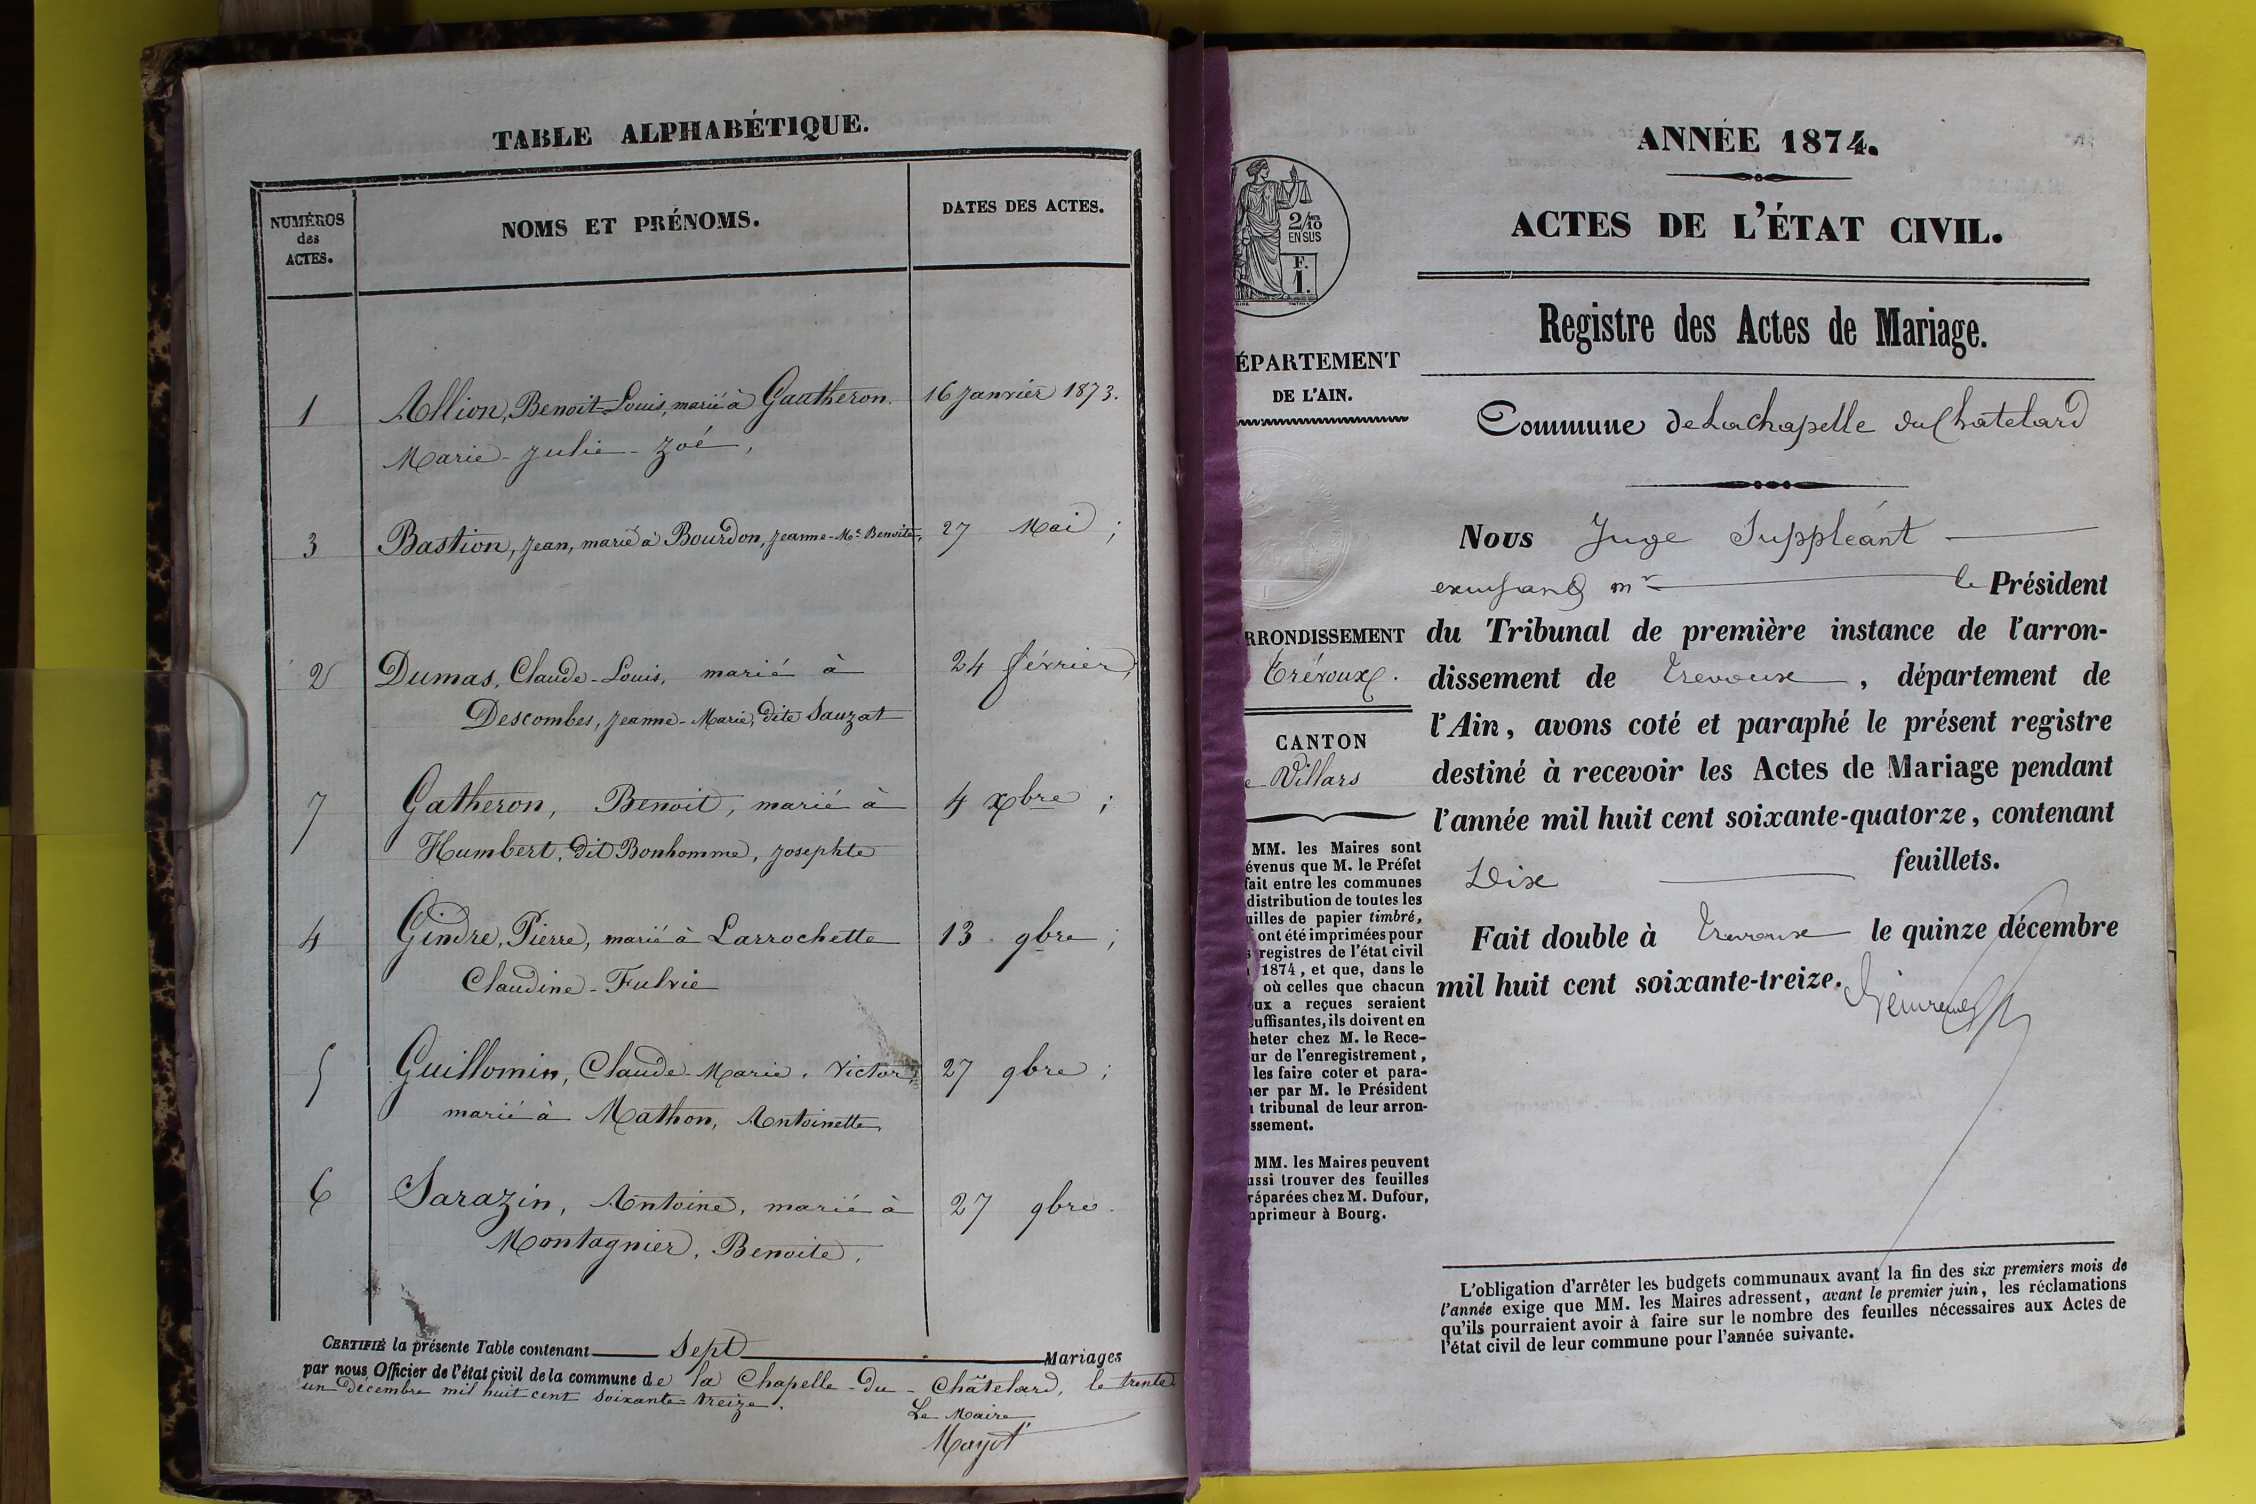 TABLE ALPHABÉTIQUE.
NUMÉROS
des
ACTES.
NOMS ET PRÉNOMS.
DATES DES ACTES.
1 Allion, Benoit-Louis, marié à Gautheron. 16 janvier 1873.
Marie-Julie-Zoé,
3 Bastion, Jean, marié à Bourdon, Jeanne-Mie Benoite, 27 Mai ;
2 Dumas, Claude-Louis, marié à 24 février,
Descombes, Jeanne-Marie, dite Sauzat
7 Gatheron, Benoit, marié à 4 xbre ;
Humbert, dit Bonhomme, Josephte
4 Gindre, Pierre, marié à Larrochette 13 9bre ;
Claudine-Fulvie
5 Guillomin, Claude-Marie-Victor, 27 9bre ;
marié à Mathon, Antoinette,
6 Sarazin, Antoine, marié à 27 9bre.
Montagnier, Benoite,
CERTIFIÉ la présente Table contenant Sept Mariages
par nous Officier de l'état civil de la commune de la Chapelle-du-Châtelard, le trente
un décembre mil huit cent soixante-treize.
Le Maire
Mayot
ANNÉE 1874.
ACTES DE L'ÉTAT CIVIL.
Registre des Actes de Mariage.
Commune de Lachapelle du Chatelard
2/10
EN SUS
F.
1.
ÉPARTEMENT
DE L'AIN.
RRONDISSEMENT
Trévoux.
CANTON
e Villars
MM. les Maires sont
évenus que M. le Préfet
fait entre les communes
distribution de toutes les
uilles de papier timbré,
ont été imprimées pour
s registres de l'état civil
1874, et que, dans le
où celles que chacun
ux a reçues seraient
uffisantes, ils doivent en
heter chez M. le Rece-
ur de l'enregistrement,
les faire coter et para-
her par M. le Président
u tribunal de leur arron-
ssement.
MM. les Maires peuvent
ussi trouver des feuilles
réparées chez M. Dufour,
mprimeur à Bourg.
Nous Juge Suppléant
exerçant mr le Président
du Tribunal de première instance de l'arron-
dissement de Trevoux, département de
l'Ain, avons coté et paraphé le présent registre
destiné à recevoir les Actes de Mariage pendant
l'année mil huit cent soixante-quatorze, contenant
Dix feuillets.
Fait double à Trevoux le quinze décembre
mil huit cent soixante-treize.
L'obligation d'arrêter les budgets communaux avant la fin des six premiers mois de
l'année exige que MM. les Maires adressent, avant le premier juin, les réclamations
qu'ils pourraient avoir à faire sur le nombre des feuilles nécessaires aux Actes de
l'état civil de leur commune pour l'année suivante.